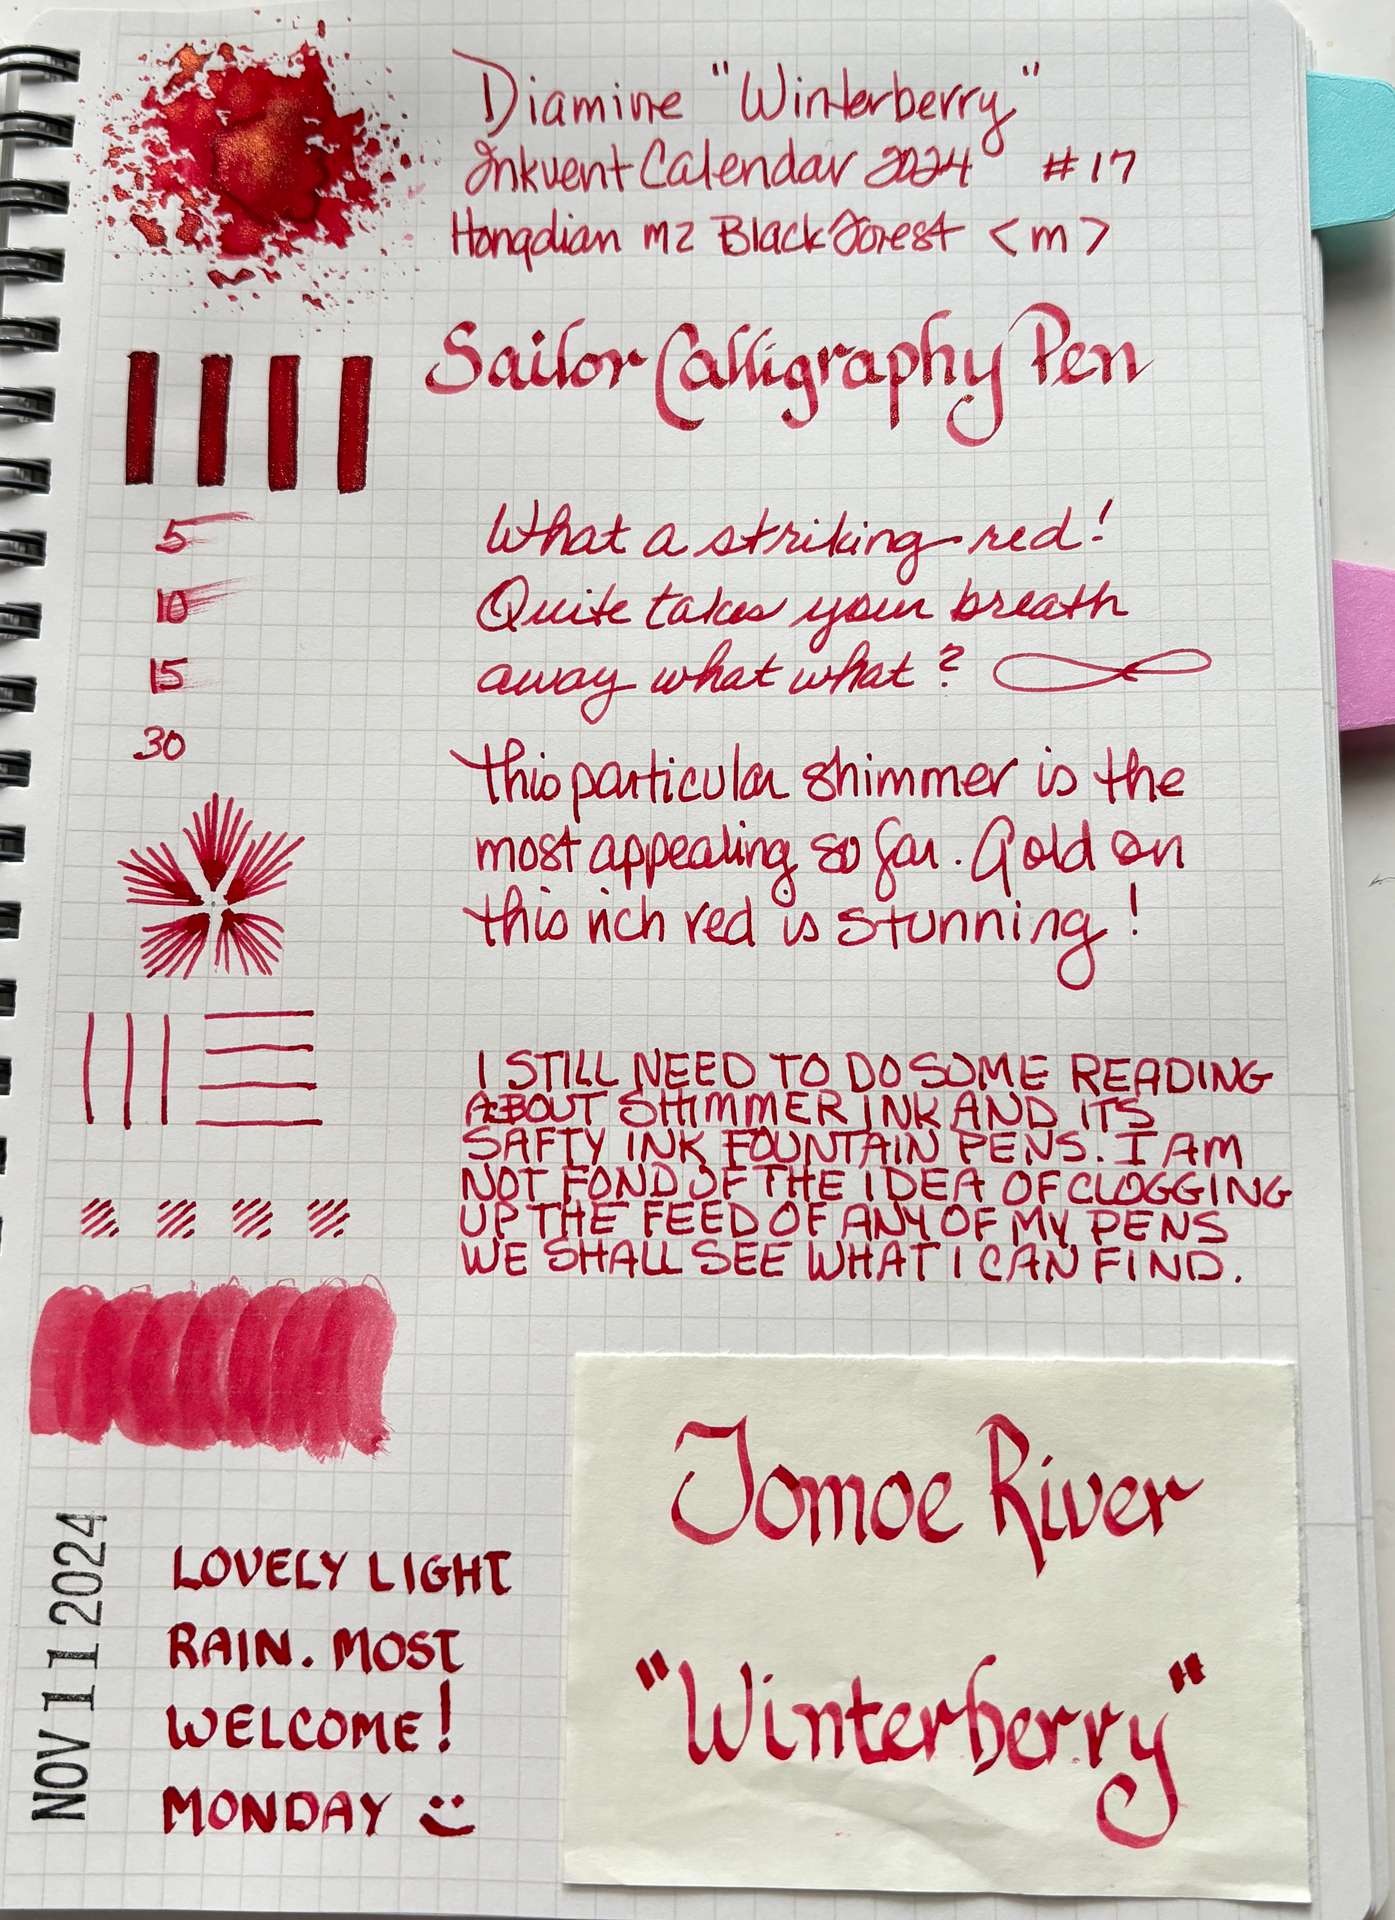 Diamine "Winterberry"
Inkvent Calendar 2024 #17
Hongdian M2 Black Forest <m>
Sailor Calligraphy Pen
5
10
15
30
What a striking red!
Quite takes your breath
away what what?
This particular shimmer is the
most appealing so far. Gold on
this rich red is stunning!
I STILL NEED TO DO SOME READING
ABOUT SHIMMER INK AND ITS
SAFTY INK FOUNTAIN PENS. I AM
NOT FOND OF THE IDEA OF CLOGGING
UP THE FEED OF ANY OF MY PENS
WE SHALL SEE WHAT I CAN FIND.
NOV 11 2024
LOVELY LIGHT
RAIN. MOST
WELCOME!
MONDAY
Tomoe River
"Winterberry"